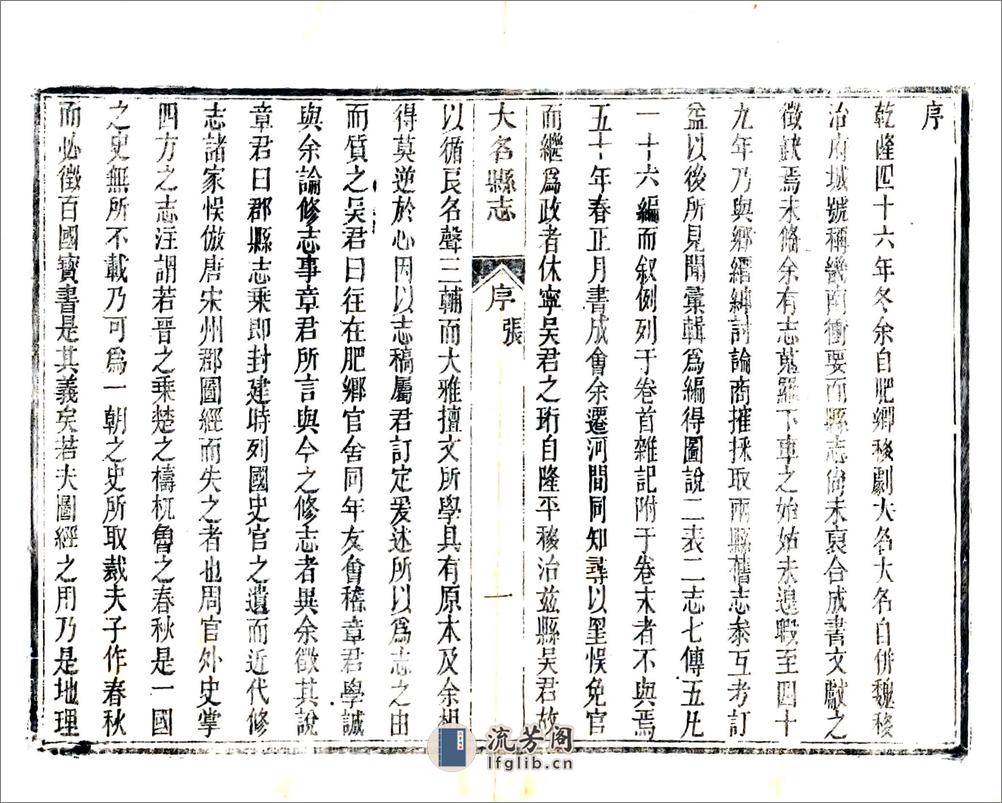 序
乾隆四十六年冬余自肥鄉移劇大名大名自併魏移
治府城號稱畿南衝要而縣志尙未裒合成書文獻之
徵缺焉未脩余有志蒐羅下車之始始未遑暇至四十
九年乃與鄉縉紳討論商搉採取兩縣舊志叅互考訂
益以後所見聞彙輯爲編得圖說二表二志七傳五凡
一十六編而叙例列于卷首雜記附于卷末者不與焉
五十年春正月書成會余遷河間同知尋以罣悞免官
而繼爲政者休寧吳君之珩自隆平移治兹縣吳君故
大名縣志 序 張 一
以循良名聲三輔而大雅擅文所學具有原本及余相
得莫逆於心因以志稿屬君訂定爰述所以爲志之由
而質之吳君曰往在肥鄉官舍同年友會稽章君學誠
與余論修志事章君所言與今之修志者異余徵其說
章君曰郡縣志乘即封建時列國史官之遺而近代修
志諸家悞倣唐宋州郡圖經而失之者也周官外史掌
四方之志注謂若晉之乘楚之檮杌魯之春秋是一國
之史無所不載乃可爲一朝之史所取裁夫子作春秋
而必徵百國寳書是其義矣若夫圖經之用乃是地理
流芳阁
lfglib.cn